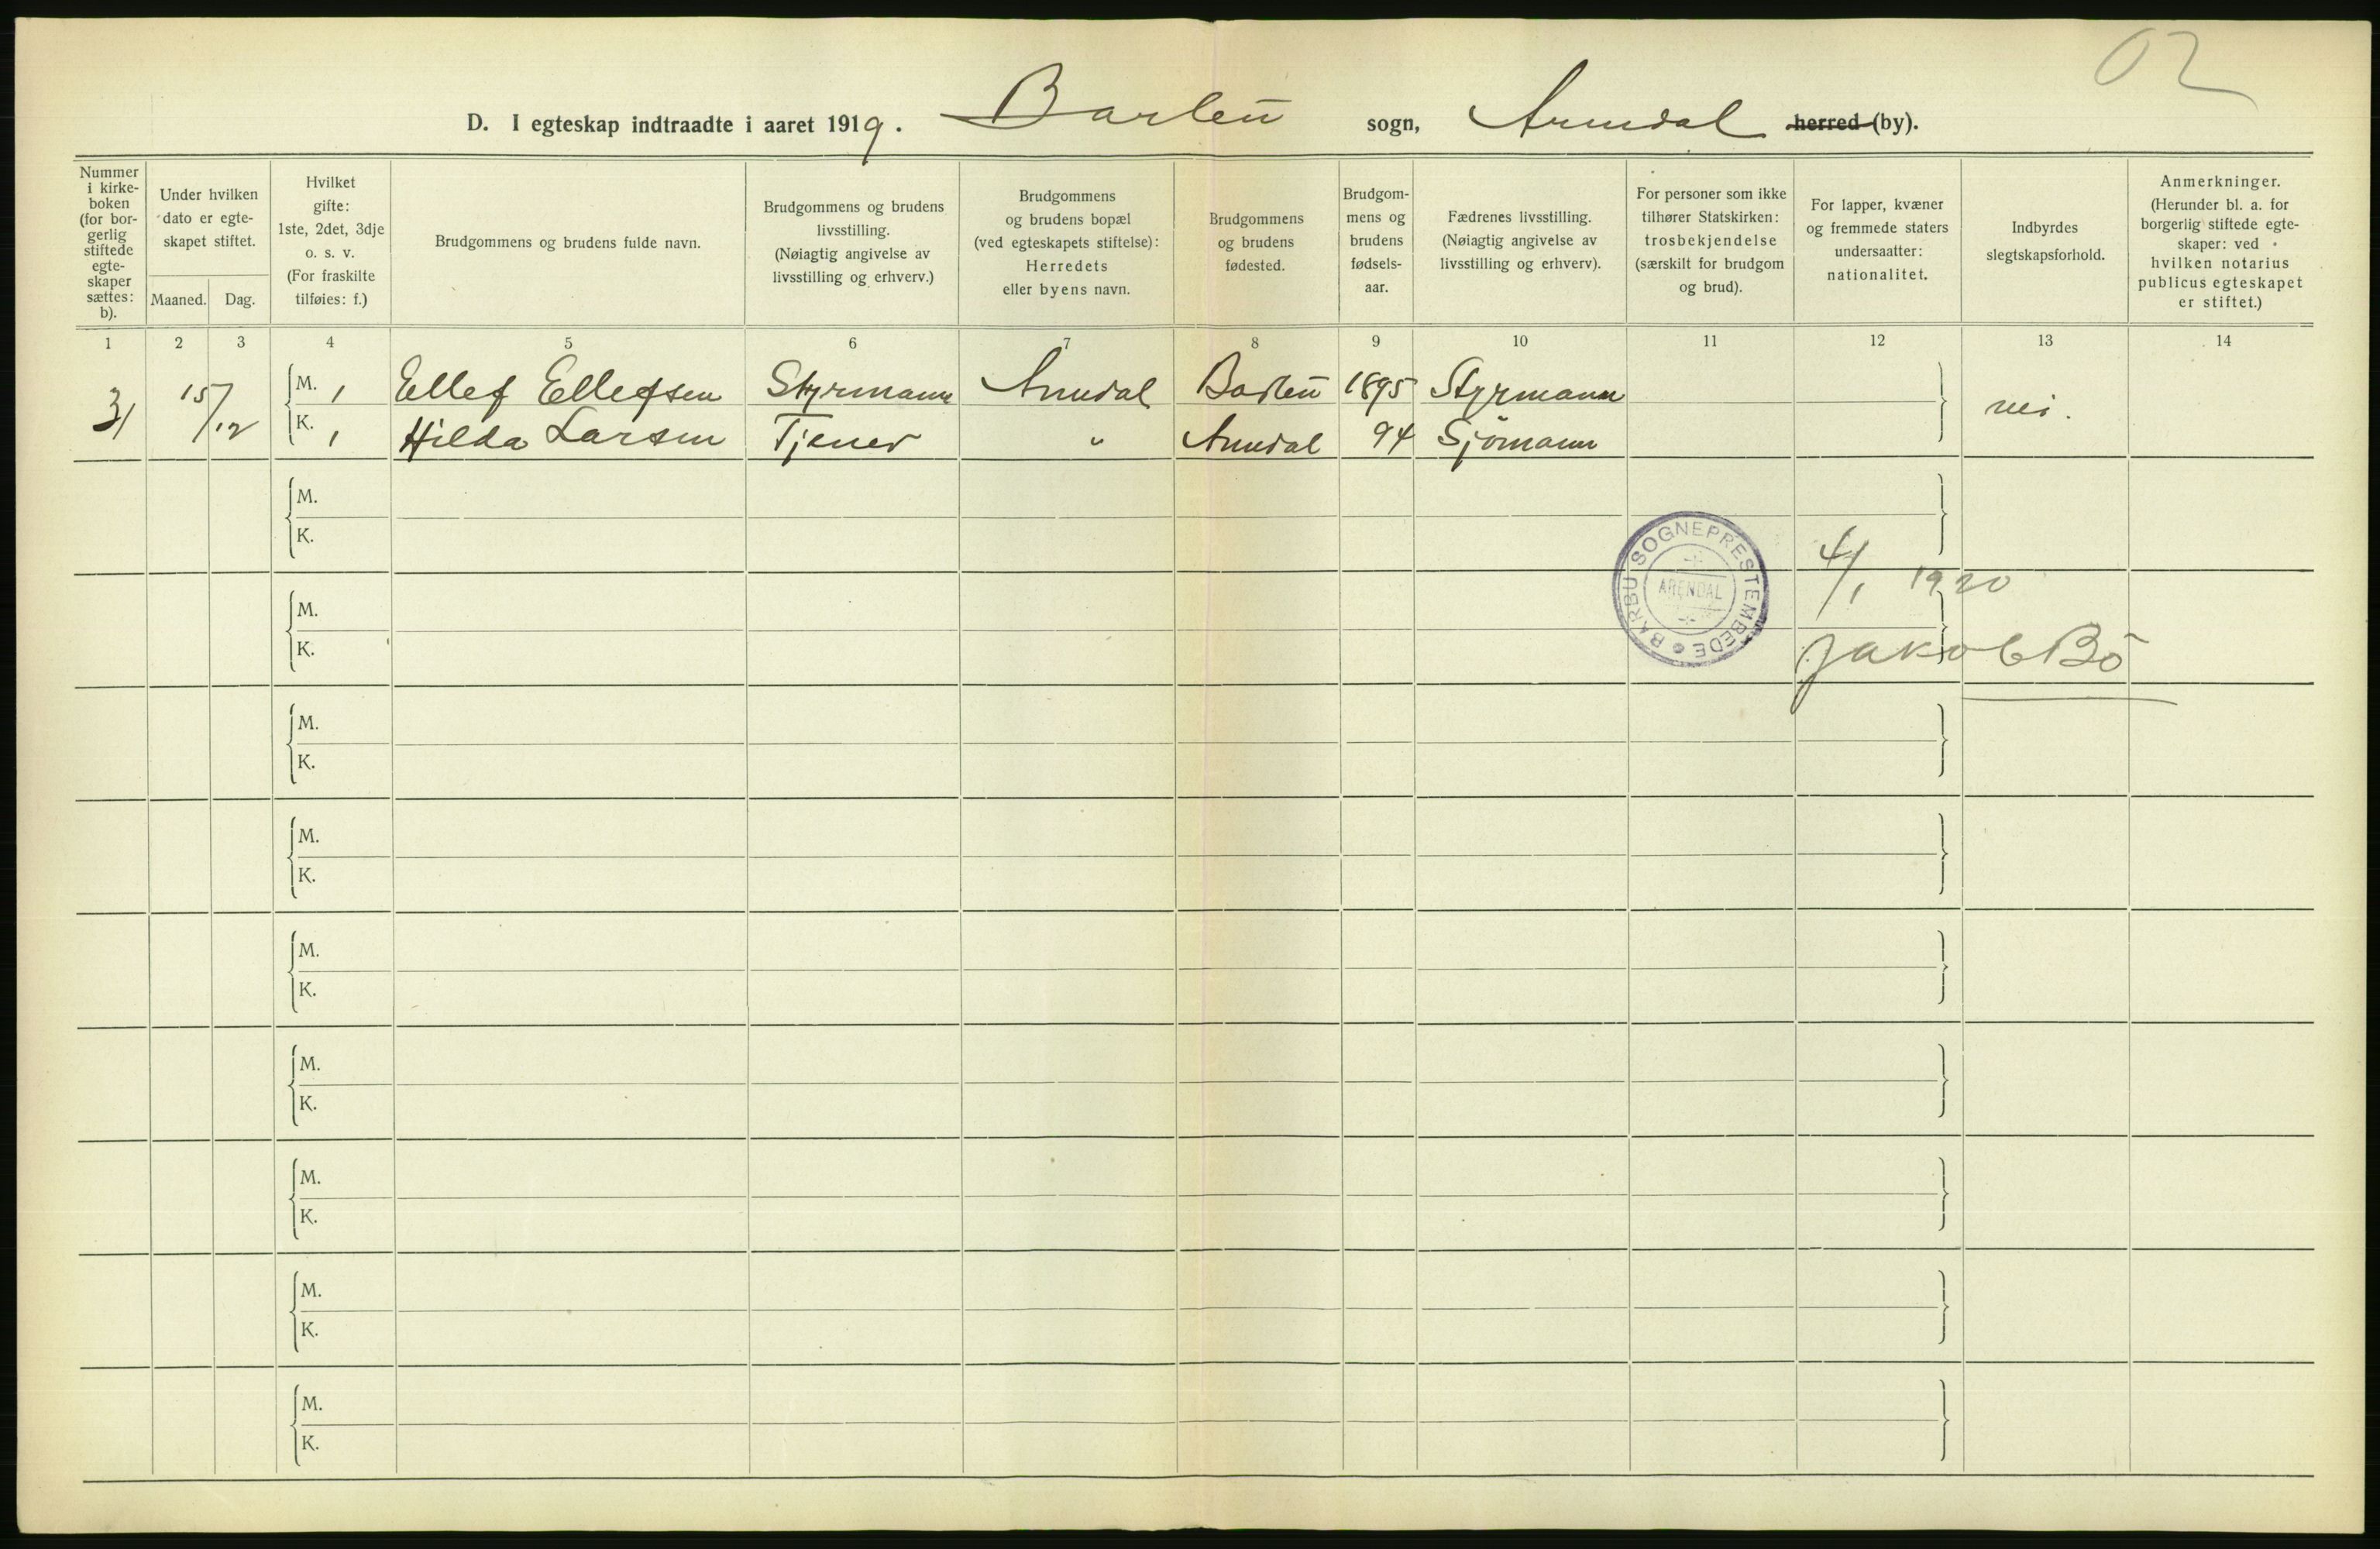 02
D. I egteskap indtraadte i aaret 1919. Barbu sogn, Arendal herred (by).
Nummer i kirke-boken (for bor-gerlig stiftede egte-skaper sættes: b).
Under hvilken dato er egte-skapet stiftet.
Maaned. Dag.
Hvilket gifte: 1ste, 2det, 3dje o. s. v. (For fraskilte tilføies: f.)
Brudgommens og brudens fulde navn.
Brudgommens og brudens livsstilling. (Nøiagtig angivelse av livsstilling og erhverv.)
Brudgommens og brudens bopæl (ved egteskapets stiftelse): Herredets eller byens navn.
Brudgommens og brudens fødested.
Brudgom-mens og brudens fødsels-aar.
Fædrenes livsstilling. (Nøiagtig angivelse av livsstilling og erhverv).
For personer som ikke tilhører Statskirken: trosbekjendelse (særskilt for brudgom og brud).
For lapper, kvæner og fremmede staters undersaatter: nationalitet.
Indbyrdes slegtskapsforhold.
Anmerkninger. (Herunder bl. a. for borgerlig stiftede egte-skaper: ved hvilken notarius publicus egteskapet er stiftet.)
1 2 3 4 5 6 7 8 9 10 11 12 13 14
31 15/12 M. 1 Ellef Ellefsen Styrmann Arendal Barbu 1895 Styrmann nei.
K. 1 Hilda Larsen Tjener " Arendal 94 Sjømann
M.
K.
BARBU SOGNEPRESTEMBEDE
ARENDAL
4/1 1920
Jakob Bø
M.
K.
M.
K.
M.
K.
M.
K.
M.
K.
M.
K.
M.
K.
M.
K.